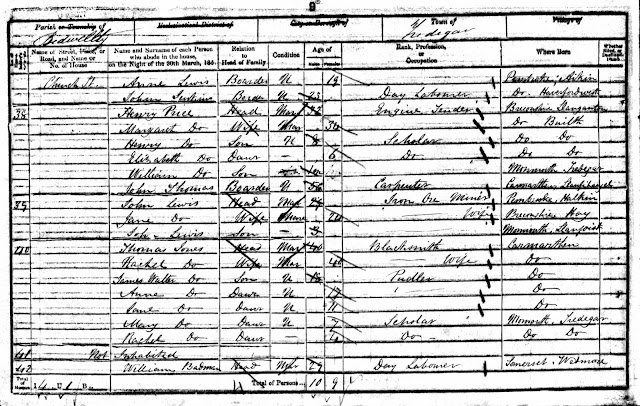 9
Parish or Township of Ecclesiastical District of City or Borough of Town of Village of
Bedwellty Tredegar
Name of Street, Place, or Road, and Name or No. of House
Name and Surname of each Person who abode in the house, on the Night of the 30th March, 1851
Relation to Head of Family
Condition
Age of
Males Females
Rank, Profession, or Occupation
Where Born
Church St. Anne Lewis Boarder U 19 Pembroke
John Jenkins Boarder U 23 Day Labourer Do Haverfordwest
38 Henry Price Head Mar Engine Tender Breconshire
Margaret Do Wife Mar 34 Do Builth
Henry Do Son U Scholar Do Do
Elizabeth Do Daur 6 Do Do Do
William Do Son Monmouth Tredegar
John Thomas Boarder U 56 Carpenter Carmarthen
39 John Lewis Head Mar 24 Iron Ore Miner Pembroke
Jane Do Wife 24 Wife Breconshire Hay
John Lewis Son Monmouth
40 Thomas Jones Head Mar 40 Blacksmith Carmarthen
Rachel Do Wife Mar 40 Wife Do
James Walter Do Son U 18 Pudler Do
Anne Do Daur U 17 Do
Jane Do Daur U 11 Do
Mary Do Daur U 7 Scholar Monmouth Tredegar
Rachel Do Daur 4 Do Do Do
41 Not Inhabited
42 William Badman Head Mar 29 Day Labourer Somerset Wedmore
Total of Persons 10 9